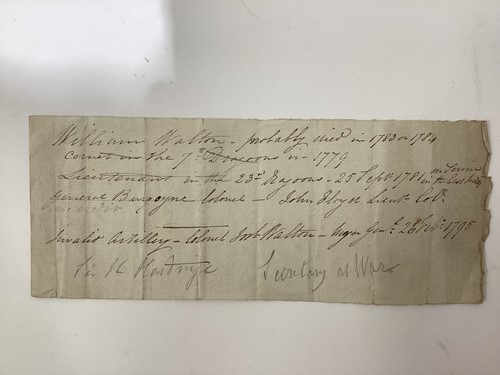 William Walton - probably died in 1783 or 1784
Cornet in the 7th Dragoons in 1779
Lieutenant in the 23rd Dragoons - 25 Septr 1781 on Service in the East Indies
General Burgoyne Colonel - John Floyd Lieut Coll.
Invalid Artillery - Colonel Josh Walton - Major Genl. 28 Febr. 1795
Sir H Hardinge Secretary at War